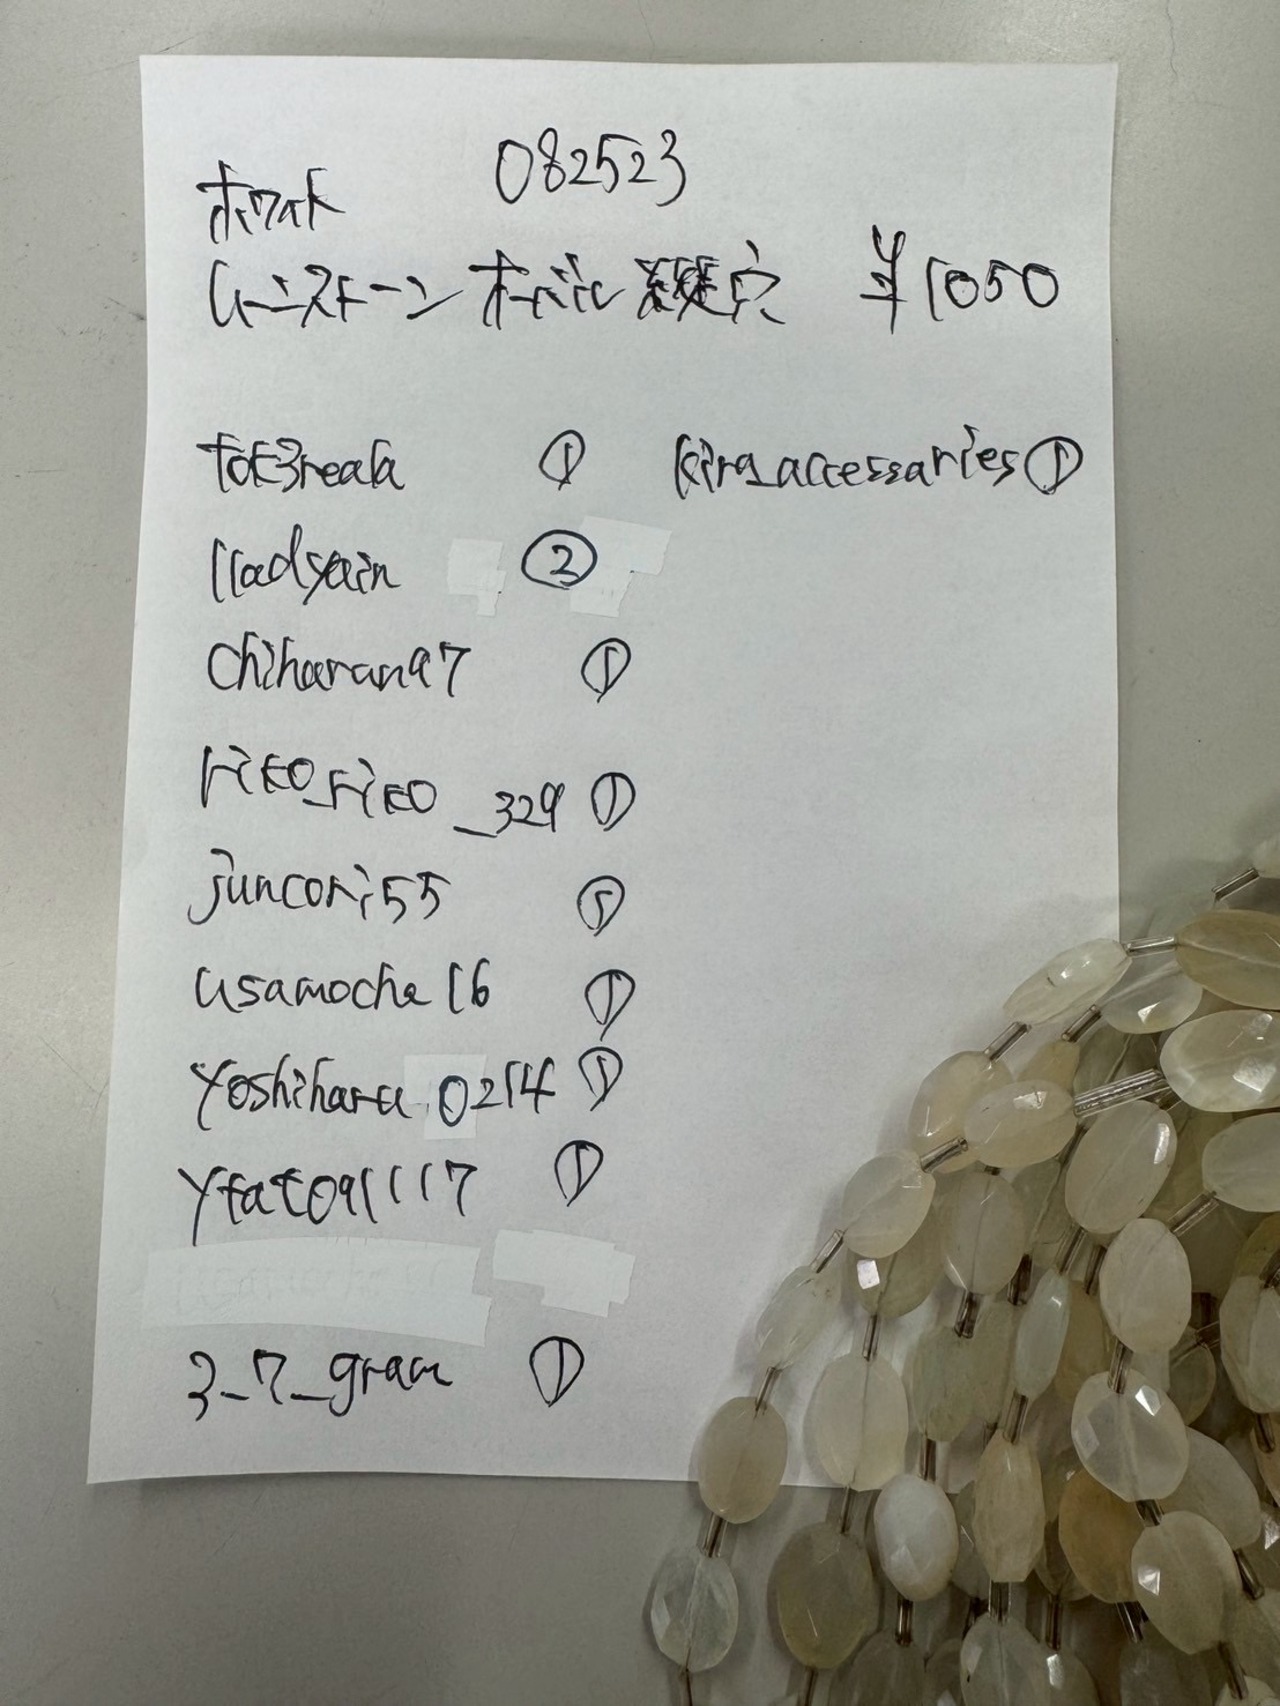 082523
ホワイト
ムーンストーン オーバル 縦穴 ¥1050
tok3reala ① kira_accessaries ①
lladyain ②
chiharan97 ①
riko_riko_329 ①
juncori55 ⑤
usamocha16 ①
yoshiharu0214 ①
yfat091117 ①
3_7_gram ①